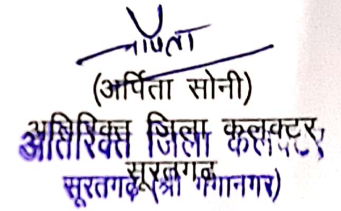 अर्पिता
(अर्पिता सोनी)
अतिरिक्त जिला कलक्टर,
अतिरिक्त जिला कलक्टर
सूरतगढ़
सूरतगढ़ (श्री गंगानगर)